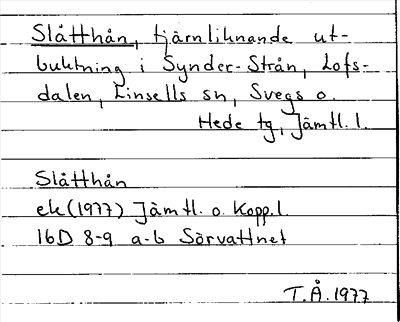 Slåtthån, tjärnliknande ut-
buktning i Synder-Strån, Lofs-
dalen, Linsells sn, Svegs o.
Hede tg, Jämtl. l.
Slåtthån
ek (1977) Jämtl. o. Kopp. l.
16D 8-9 a-b Sörvattnet
T.Å. 1977